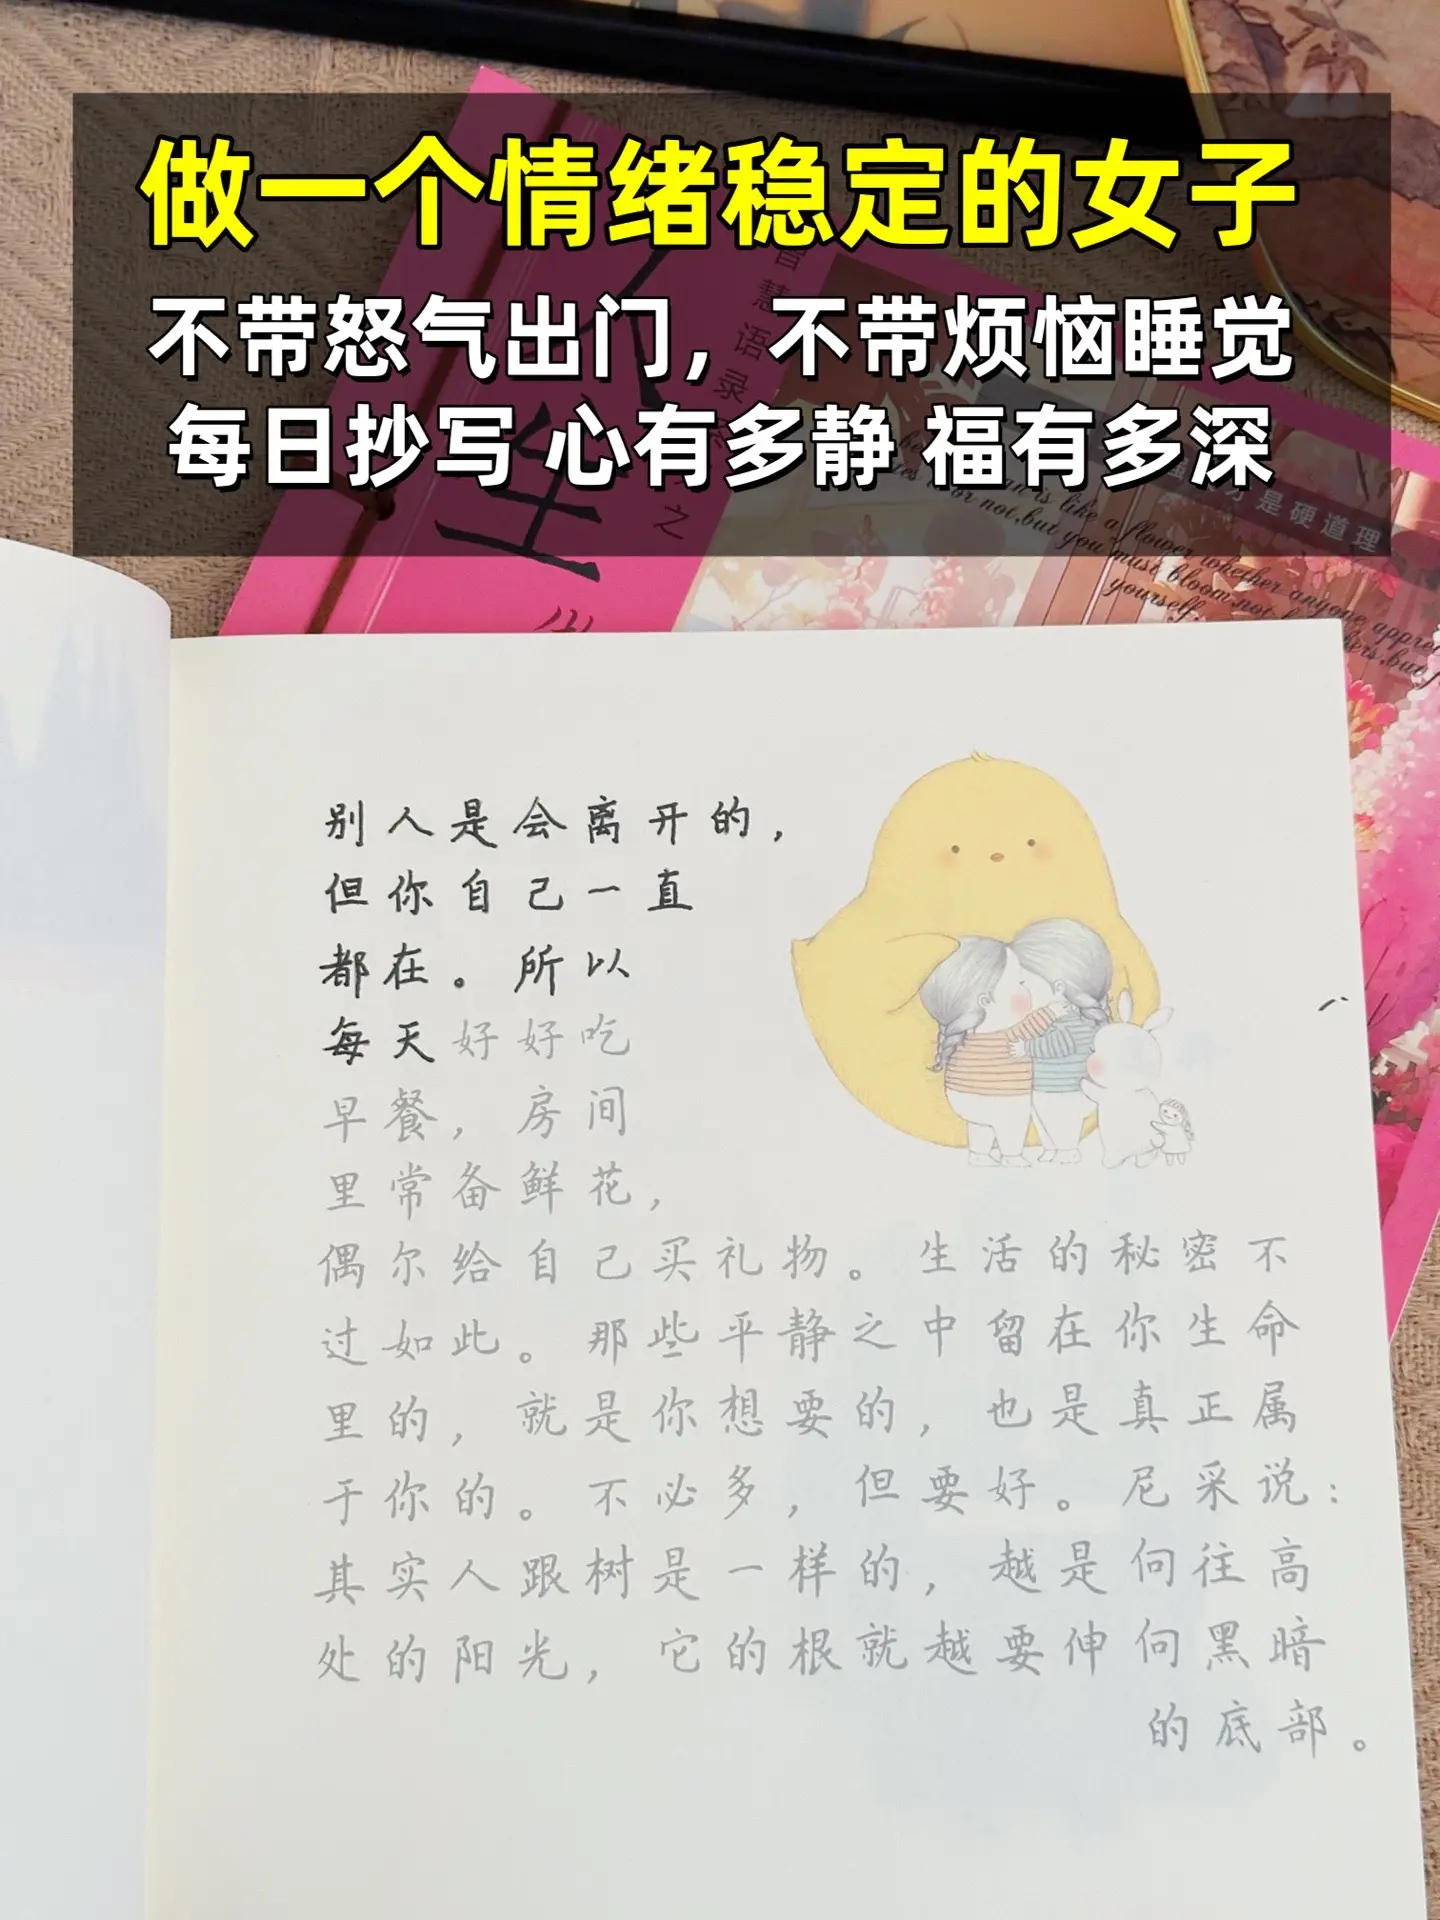 做一个情绪稳定的女子
不带怒气出门，不带烦恼睡觉
每日抄写 心有多静 福有多深
慧语录
之
才是硬道理
yourself
别人是会离开的，
但你自己一直
都在。所以
每天好好吃
早餐，房间
里常备鲜花，
偶尔给自己买礼物。生活的秘密不
过如此。那些平静之中留在你生命
里的，就是你想要的，也是真正属
于你的。不必多，但要好。尼采说：
其实人跟树是一样的，越是向往高
处的阳光，它的根就越要伸向黑暗
的底部。